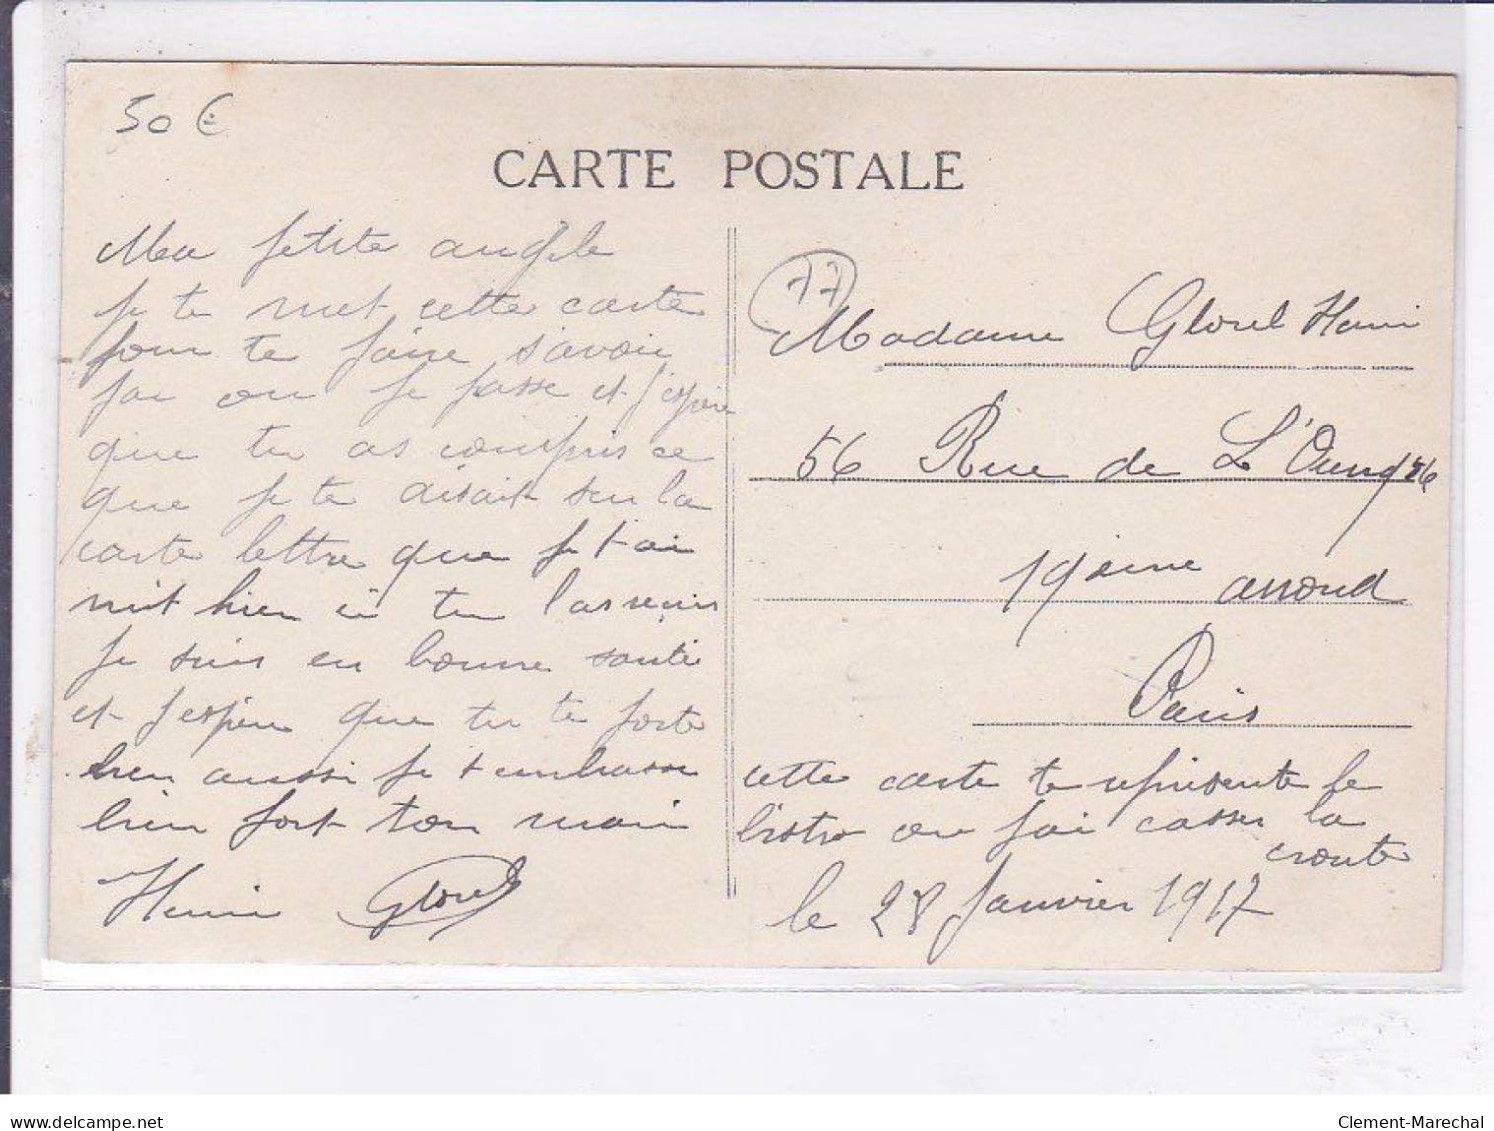 50 €
CARTE POSTALE
Ma petite angèle
je te met cette carte
pour te faire savoir
par ou je passe et j'espère
que tu as compris ce
que je te disait sur la
carte lettre que je t'ai
mit hier si tu l'as reçus
je suis en bonne santé
et j'espère que tu te porte
bien aussi je t'embrasse
bien fort ton mari
Henri Glorel
77
Madame Glorel Henri
56 Rue de L'Ourcq 56
19 eme arrond
Paris
cette carte te represente le
bistro ou j'ai casser la
croute
le 28 Janvier 1917
www.delcampe.net
Clement-Marechal